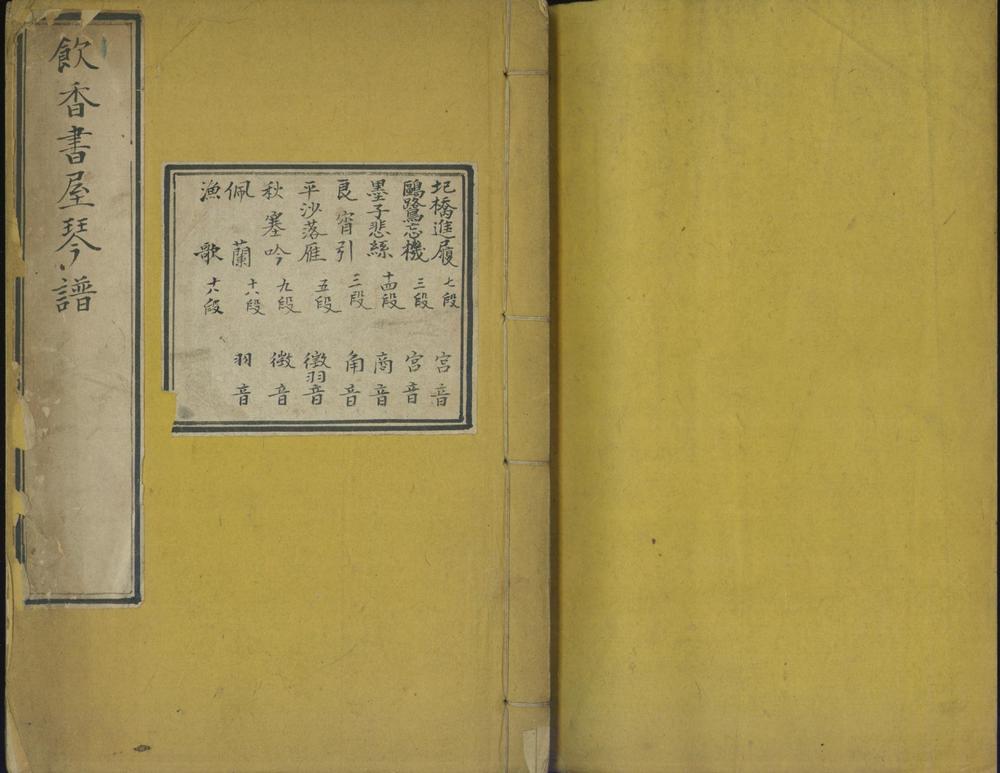 飲香書屋琴譜
圯橋進履 七段 宮音
鷗鷺忘機 三段 宮音
墨子悲絲 十四段 商音
良宵引 三段 角音
平沙落雁 五段 徵羽音
秋塞吟 九段 徵音
佩蘭 十六段 羽音
漁歌 十八段